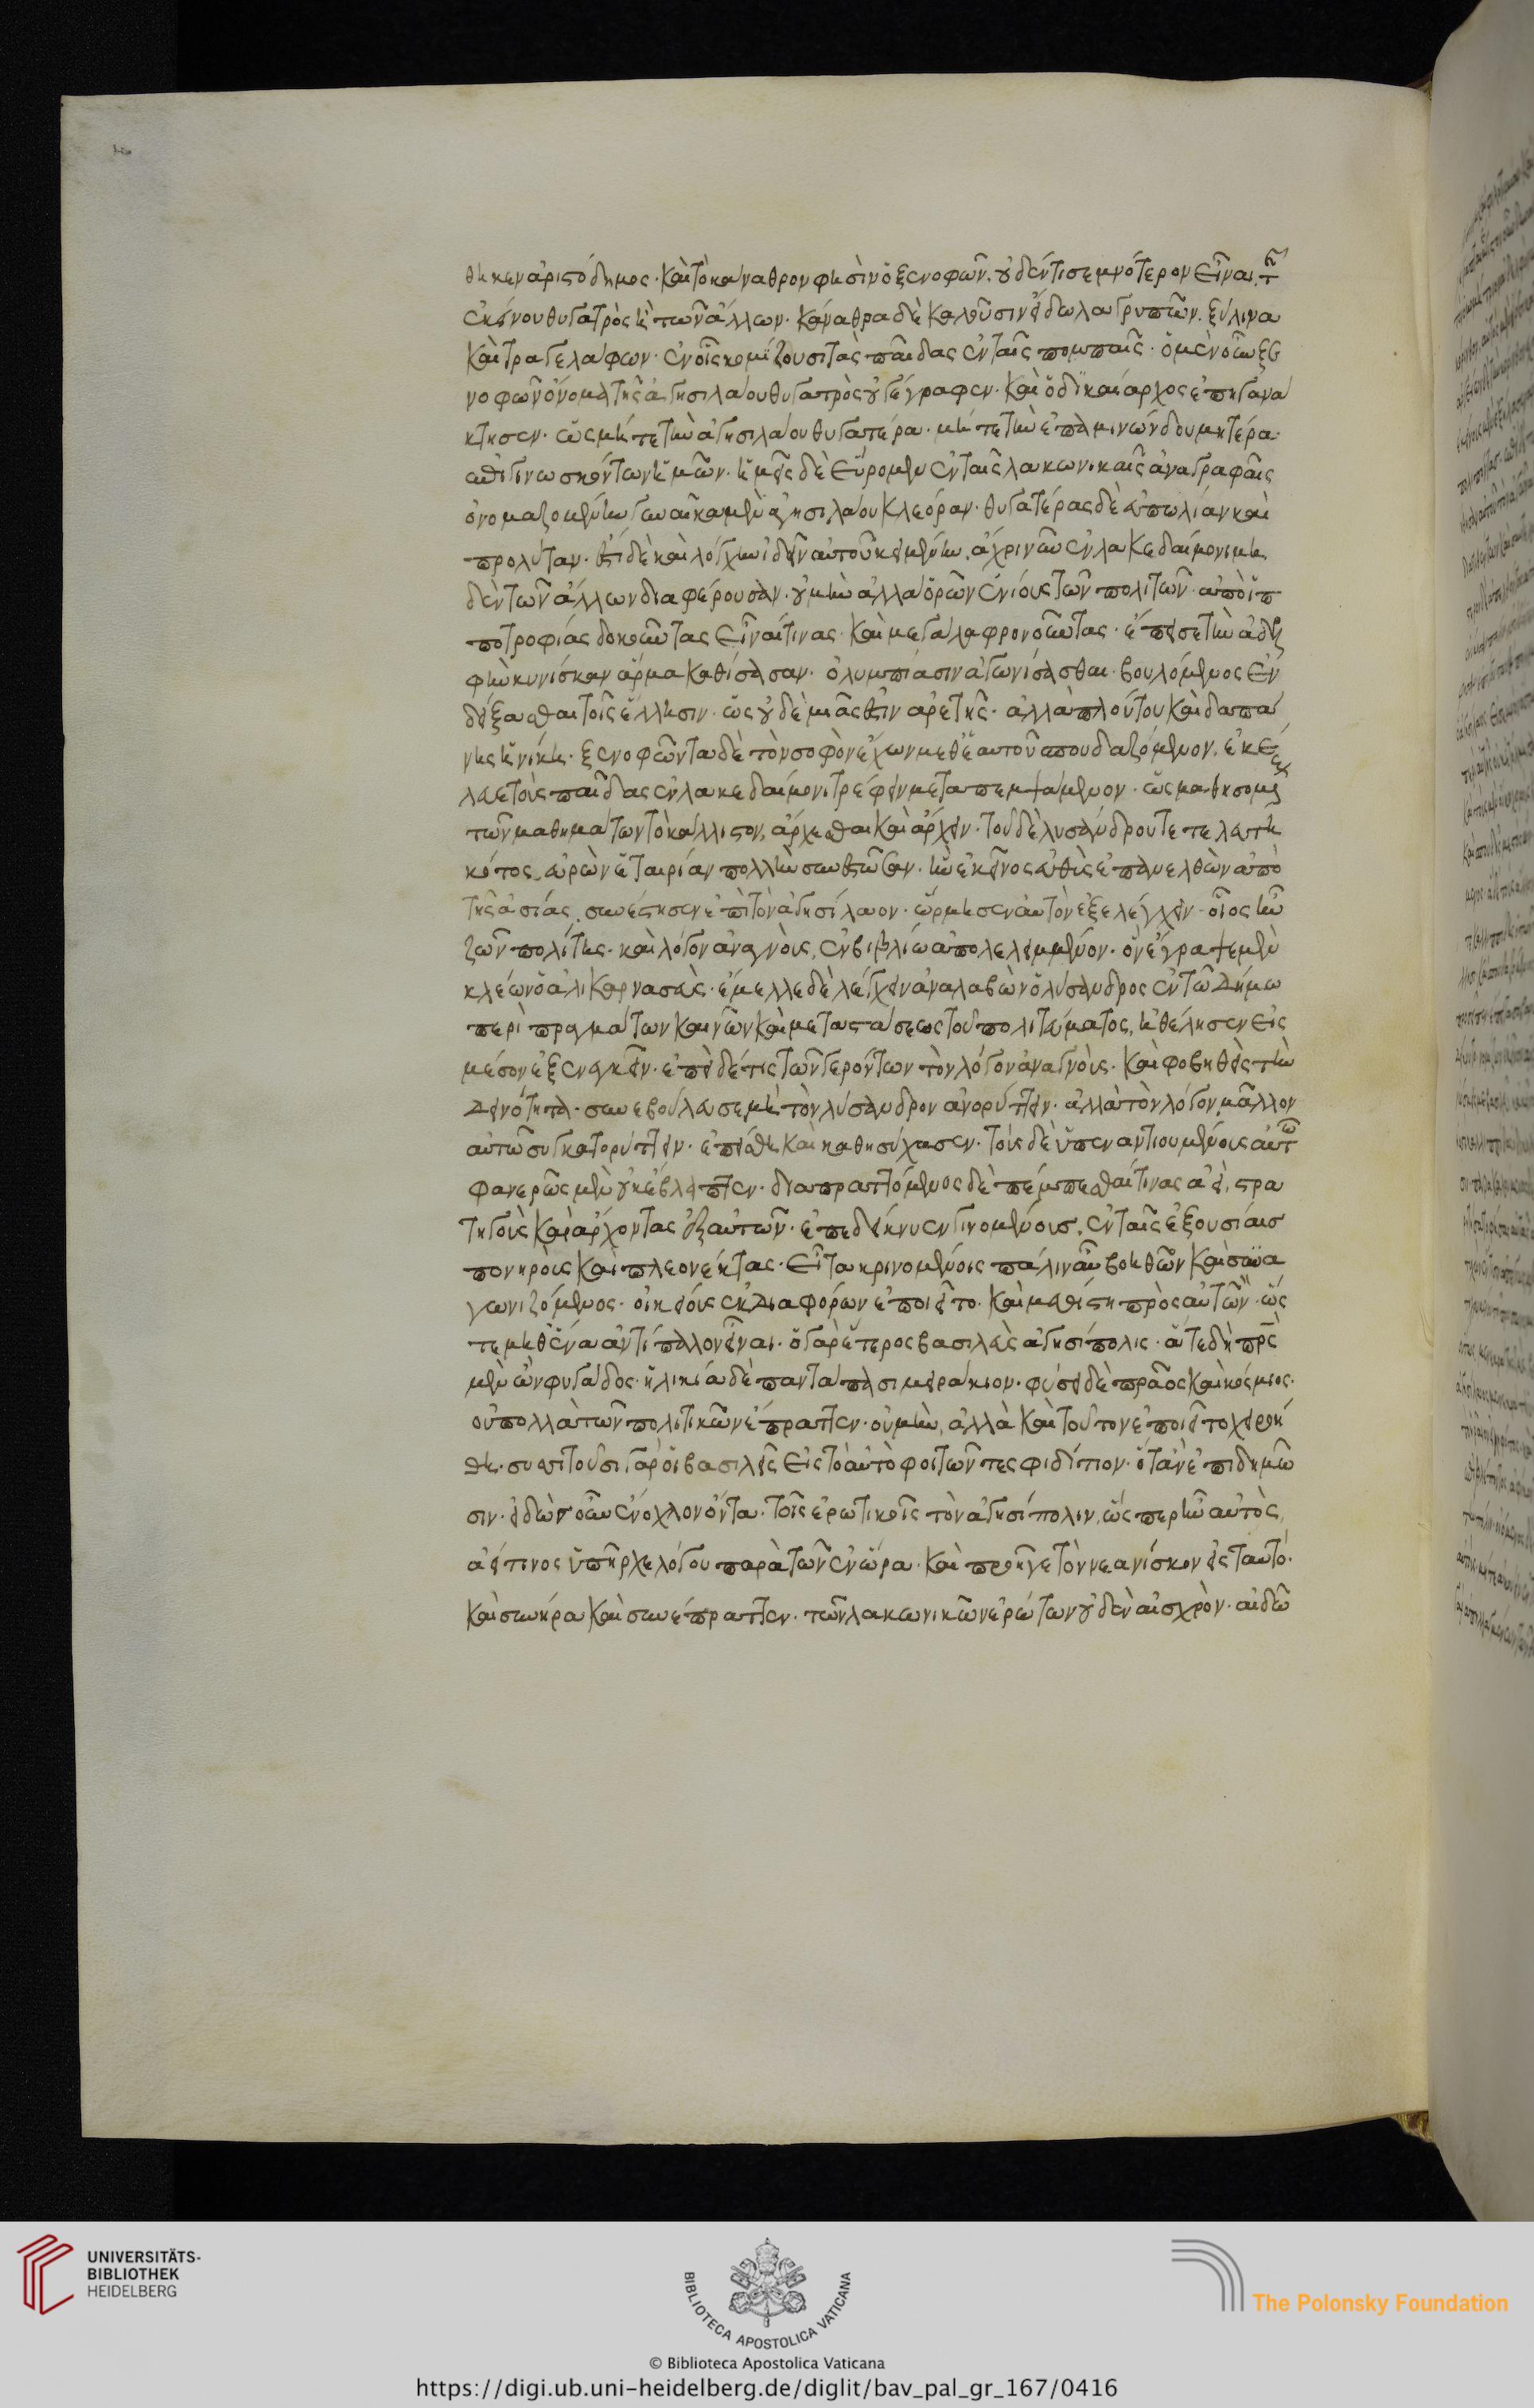 θηκεν ἀριστόδημος· καὶ τὸ κάναθρον φησὶν ὁ ξενοφῶν, οὐδέν τι σεμνότερον εἶναι τῆ
ἐκείνου θυγατρὸς ἢ τῶν ἄλλων· κάναθρα δὲ καλοῦσιν εἴδωλα γρυπῶν ξύλινα
καὶ τραγελάφων· ἐν οἷς κομίζουσι τὰς παῖδας ἐν ταῖς πομπαῖς· ὁ μὲν οὖν ξε
νοφῶν ὄνομα τῆς ἀγησιλάου θυγατρὸς οὐ γέγραφεν· καὶ ὁ δικαίαρχος ἐπηγανά
κτησεν· ὡς μήτε τὴν ἀγησιλάου θυγατέρα· μήτε τὴν ἐπαμινώνδου μητέρα·
γινωσκόντων ἡμῶν· ἡμεῖς δὲ εὕρομεν ἐν ταῖς λακωνικαῖς ἀναγραφαῖς
ὀνομαζομένην γυναῖκα μὲν ἀγησιλάου κλεόραν· θυγατέρας δὲ ἀπωλίαν καὶ
προλύταν· ἔστι δὲ καὶ λόγχην ἰδεῖν αὐτοῦ κειμένην ἄχρι νῦν ἐν λακεδαίμονι μη
δὲν τῶν ἄλλων διαφέρουσαν· οὐ μὴν ἀλλὰ ὁρῶν ἐνίους τῶν πολιτῶν ἀπὸ ἱπ
ποτροφίας δοκοῦντας εἶναί τινας καὶ μεγαλοφρονοῦντας· ἔπεισε τὴν ἀδελ
φὴν κυνίσκαν ἅρμα καθίσασαν· ὀλυμπιάσιν ἀγωνίσασθαι· βουλόμενος ἐν
δείξασθαι τοῖς ἕλλησιν· ὡς οὐδὲ μιᾶς ἐστιν ἀρετῆς· ἀλλὰ πλούτου καὶ δαπά
νης ἡ νίκη· ξενοφῶντα δὲ τὸν σοφὸν ἔχων μεθ' ἑαυτοῦ σπουδαζόμενον, ἐκέ
λευε τοὺς παῖδας ἐν λακεδαίμονι τρέφειν μεταπεμψάμενον· ὡς μαθησομένους
τῶν μαθημάτων τὸ κάλλιστον, ἄρχεσθαι καὶ ἄρχειν· τοῦ δὲ λυσάνδρου τετελευτη
κότος, εὑρὼν ἑταιρίαν πολλὴν συνεστῶσαν· ἣν ἐκεῖνος εὐθὺς ἐπανελθὼν ἀπὸ
τῆς ἀσίας, συνέστησεν ἐπὶ τὸν ἀγησίλαον· ὥρμησεν αὐτὸν ἐξελέγχειν· οἷος ἦν
ζῶν πολίτης· καὶ λόγον ἀναγνοὺς, ἐν βιβλίω ἀπολελειμμένον· ὃν ἔγραψε μὲν
κλέων ὁ ἁλικαρνασεὺς· ἔμελλε δὲ λέγειν ἀναλαβὼν ὁ λύσανδρος ἐν τῶ δήμω
περὶ πραγμάτων καινῶν καὶ μεταστάσεως τοῦ πολιτεύματος, ἠθέλησεν εἰς
μέσον ἐξενεγκεῖν· ἐπεὶ δέ τις τῶν γερόντων τὸν λόγον ἀναγνοὺς· καὶ φοβηθεὶς τὴν
δεινότητα· συνεβούλευσε μὴ τὸν λύσανδρον ἀνορύττειν· ἀλλὰ τὸν λόγον μᾶλλον
αὐτῶ συγκατορύττειν· ἐπείσθη καὶ καθησύχασεν· τοὺς δὲ ὑπεναντιουμένους αὐτῶ
φανερῶς μὲν οὐκ ἔβλαπτεν· διαπραττόμενος δὲ πέμπεσθαί τινας ἀεὶ, στρα
τηγοὺς καὶ ἄρχοντας ἐξ αὐτῶν· ἐπεδείκνυεν γινομένους, ἐν ταῖς ἐξουσίαις
πονηροὺς καὶ πλεονέκτας· εἶτα κρινομένοις πάλιν αὖ βοηθῶν καὶ συνα
γωνιζόμενος· οἰκείους ἐκ διαφόρων ἐποιεῖτο· καὶ μεθίστη πρὸς αὐτὸν· ὥς
τε μηθένα ἀντίπαλον εἶναι· ὁ γὰρ ἕτερος βασιλεὺς ἀγησίπολις· ἅτε δὴ πρς
μὲν ὢν φυγάδος· ἡλικία δὲ παντάπασι μειράκιον· φύσει δὲ πρᾶος καὶ κόσμιος·
οὐ πολλὰ τῶν πολιτικῶν ἔπραττεν· οὐ μὴν, ἀλλὰ καὶ τοῦτον ἐποιεῖτο χειροή
θη· συσσιτοῦσι γὰρ οἱ βασιλεῖς εἰς τὸ αὐτὸ φοιτῶντες φιδίτιον· ὅταν ἐπιδημῶ
σιν· εἰδὼς οὖν ἔνοχον ὄντα τοῖς ἐρωτικοῖς τὸν ἀγησίπολιν, ὥσπερ ἦν αὐτὸς,
ἀεί τινος ὑπῆρχε λόγου παρὰ τῶν ἐν ὥρα· καὶ προῆγε τὸν νεανίσκον εἰς ταυτό·
καὶ συνήρα καὶ συνέπραττεν· τῶν λακωνικῶν ἐρώτων οὐδὲν αἰσχρὸν· αἰδῶ
UNIVERSITÄTS-
BIBLIOTHEK
HEIDELBERG
BIBLIOTECA APOSTOLICA VATICANA
The Polonsky Foundation
© Biblioteca Apostolica Vaticana
https://digi.ub.uni-heidelberg.de/diglit/bav_pal_gr_167/0416